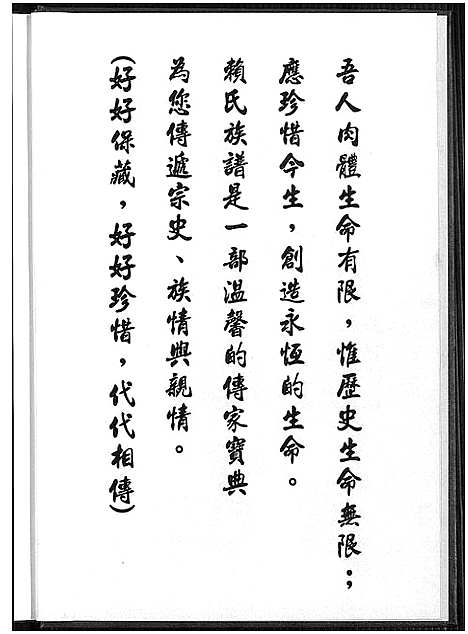 吾人肉體生命有限，惟歷史生命無限；
應珍惜今生，創造永恆的生命。
賴氏族譜是一部溫馨的傳家寶典
為您傳遞宗史、族情與親情。
(好好保藏，好好珍惜，代代相傳)